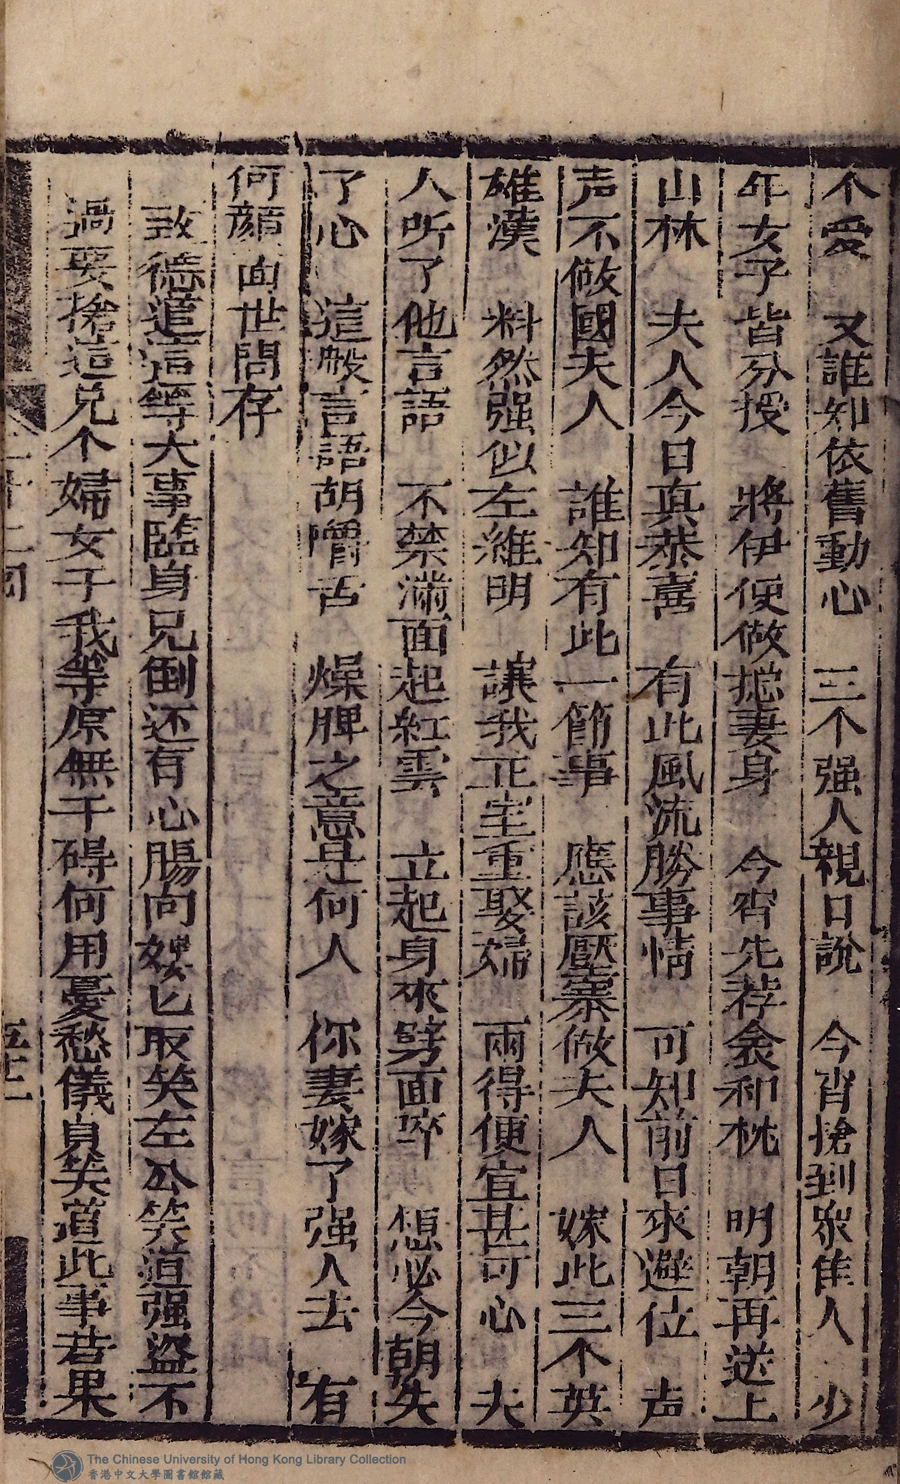 不愛　又誰知依舊動心　三个强人親口說　今宵搶到衆佳人　少
年女子皆分授　將伊便做掟妻身　今宵先荐衾和枕　明朝再送上
山林　夫人今日真恭喜　有此風流勝事情　可知前日來避位　声
声不做國夫人　誰知有此一節事　應該壓寨做夫人　嫁此三个英
雄漢　料然强似左維明　讓我正室重娶婦　兩得便宜甚可心　夫
人听了他言語　不禁滿面起紅雲　立起身來劈面啐　想必今朝失
了心　這般言語胡嚼舌　燥脾之意是何人　你妻嫁了强人去　有
何顔面世間存
致德道這等大事臨身兄倒还有心腸向嫂匕取笑左公笑道强盗不
過要搶這兒个婦女子我等原無干碍何用憂愁儀貞笑道此事若果
二十二回
五十二
The Chinese University of Hong Kong Library Collection
香港中文大學圖書館館藏